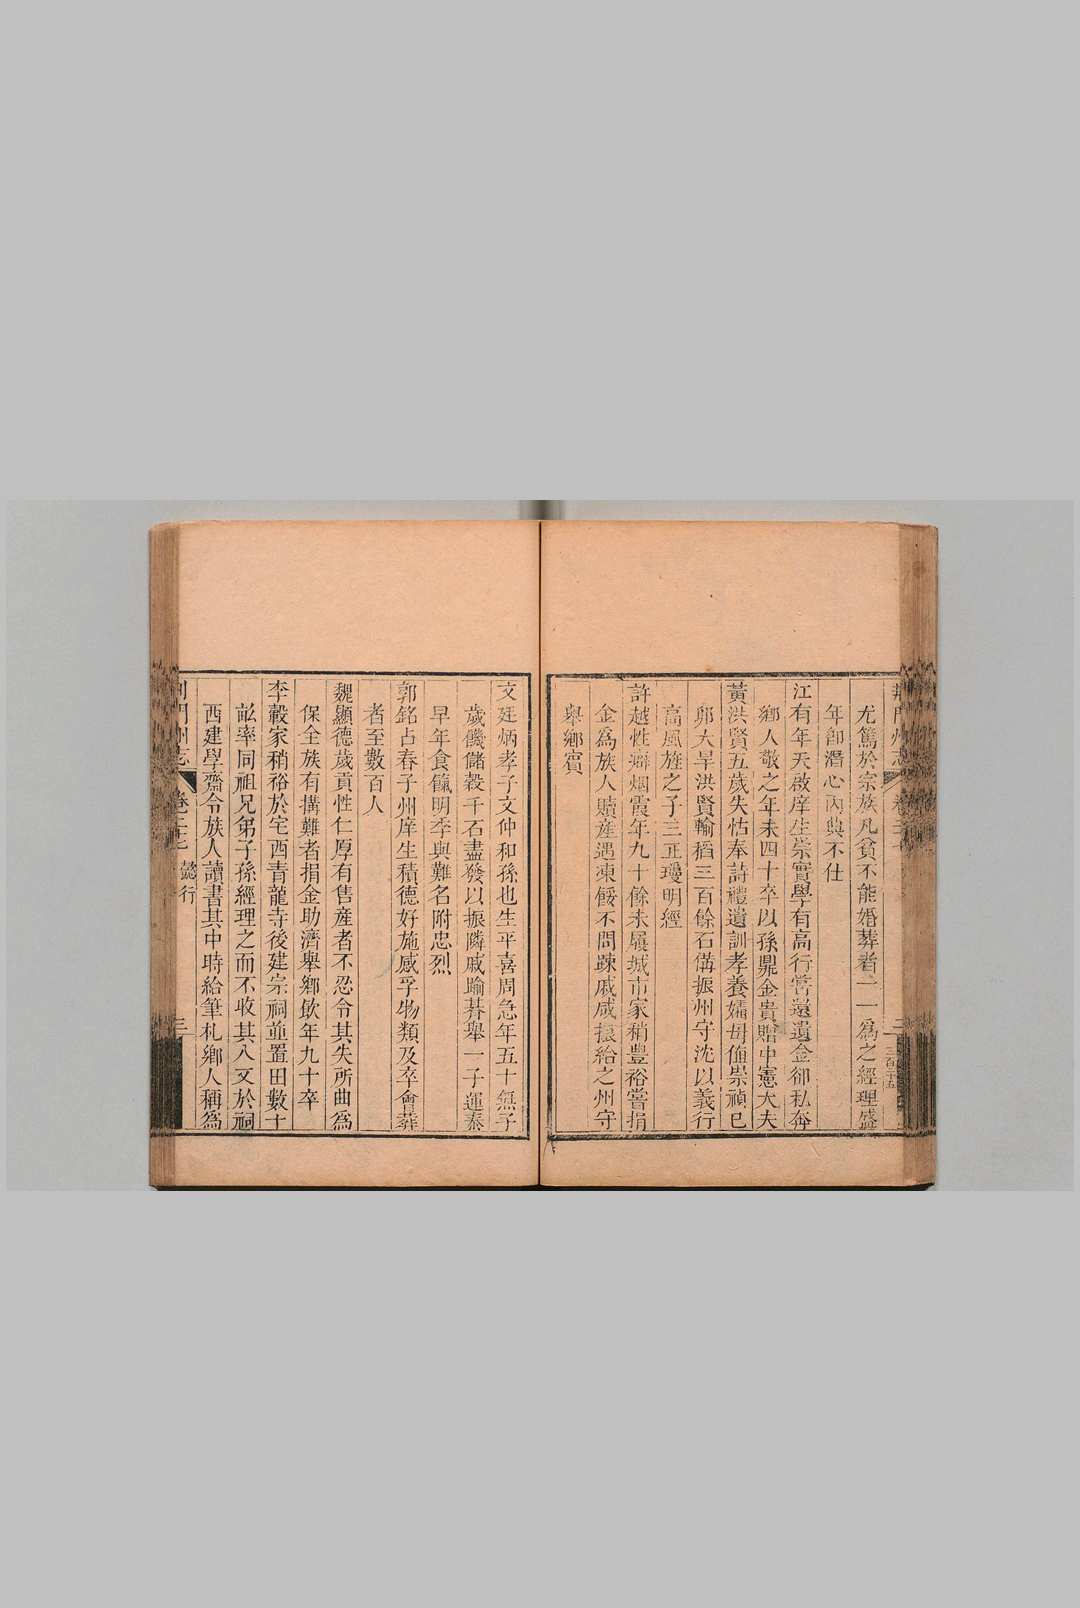 荆門州志
卷三十七
三百三十五
尤篤於宗族凡貧不能婚葬者一一爲之經理盛
年卽潛心內典不仕
江有年天啟庠生崇實學有高行嘗還遺金卻私奔
鄉人敬之年未四十卒以孫鼎金貴贈中憲大夫
黃洪賢五歲失怙奉詩禮遺訓孝養孀母値崇禎巳
卯大旱洪賢輸稻三百餘石備振州守沈以義行
高風旌之子三正璦明經
許越性癖烟霞年九十餘未履城市家稍豐裕嘗捐
金爲族人贖產遇凍餒不問踈戚咸振給之州守
舉鄉賓
文廷炳孝子文仲和孫也生平喜周急年五十無子
歲饑儲穀千石盡發以振隣戚踰朞舉一子運泰
早年食餼明季與難名附忠烈
郭銘占春子州庠生積德好施感孚物類及卒會葬
者至數百人
魏顯德歲貢性仁厚有售產者不忍令其失所曲爲
保全族有搆難者捐金助濟舉鄉飲年九十卒
李穀家稍裕於宅西青龍寺後建宗祠並置田數十
畝率同祖兄弟子孫經理之而不收其入又於祠
西建學齋令族人讀書其中時給筆札鄉人稱爲
荆門州志
卷三十七 懿行
三